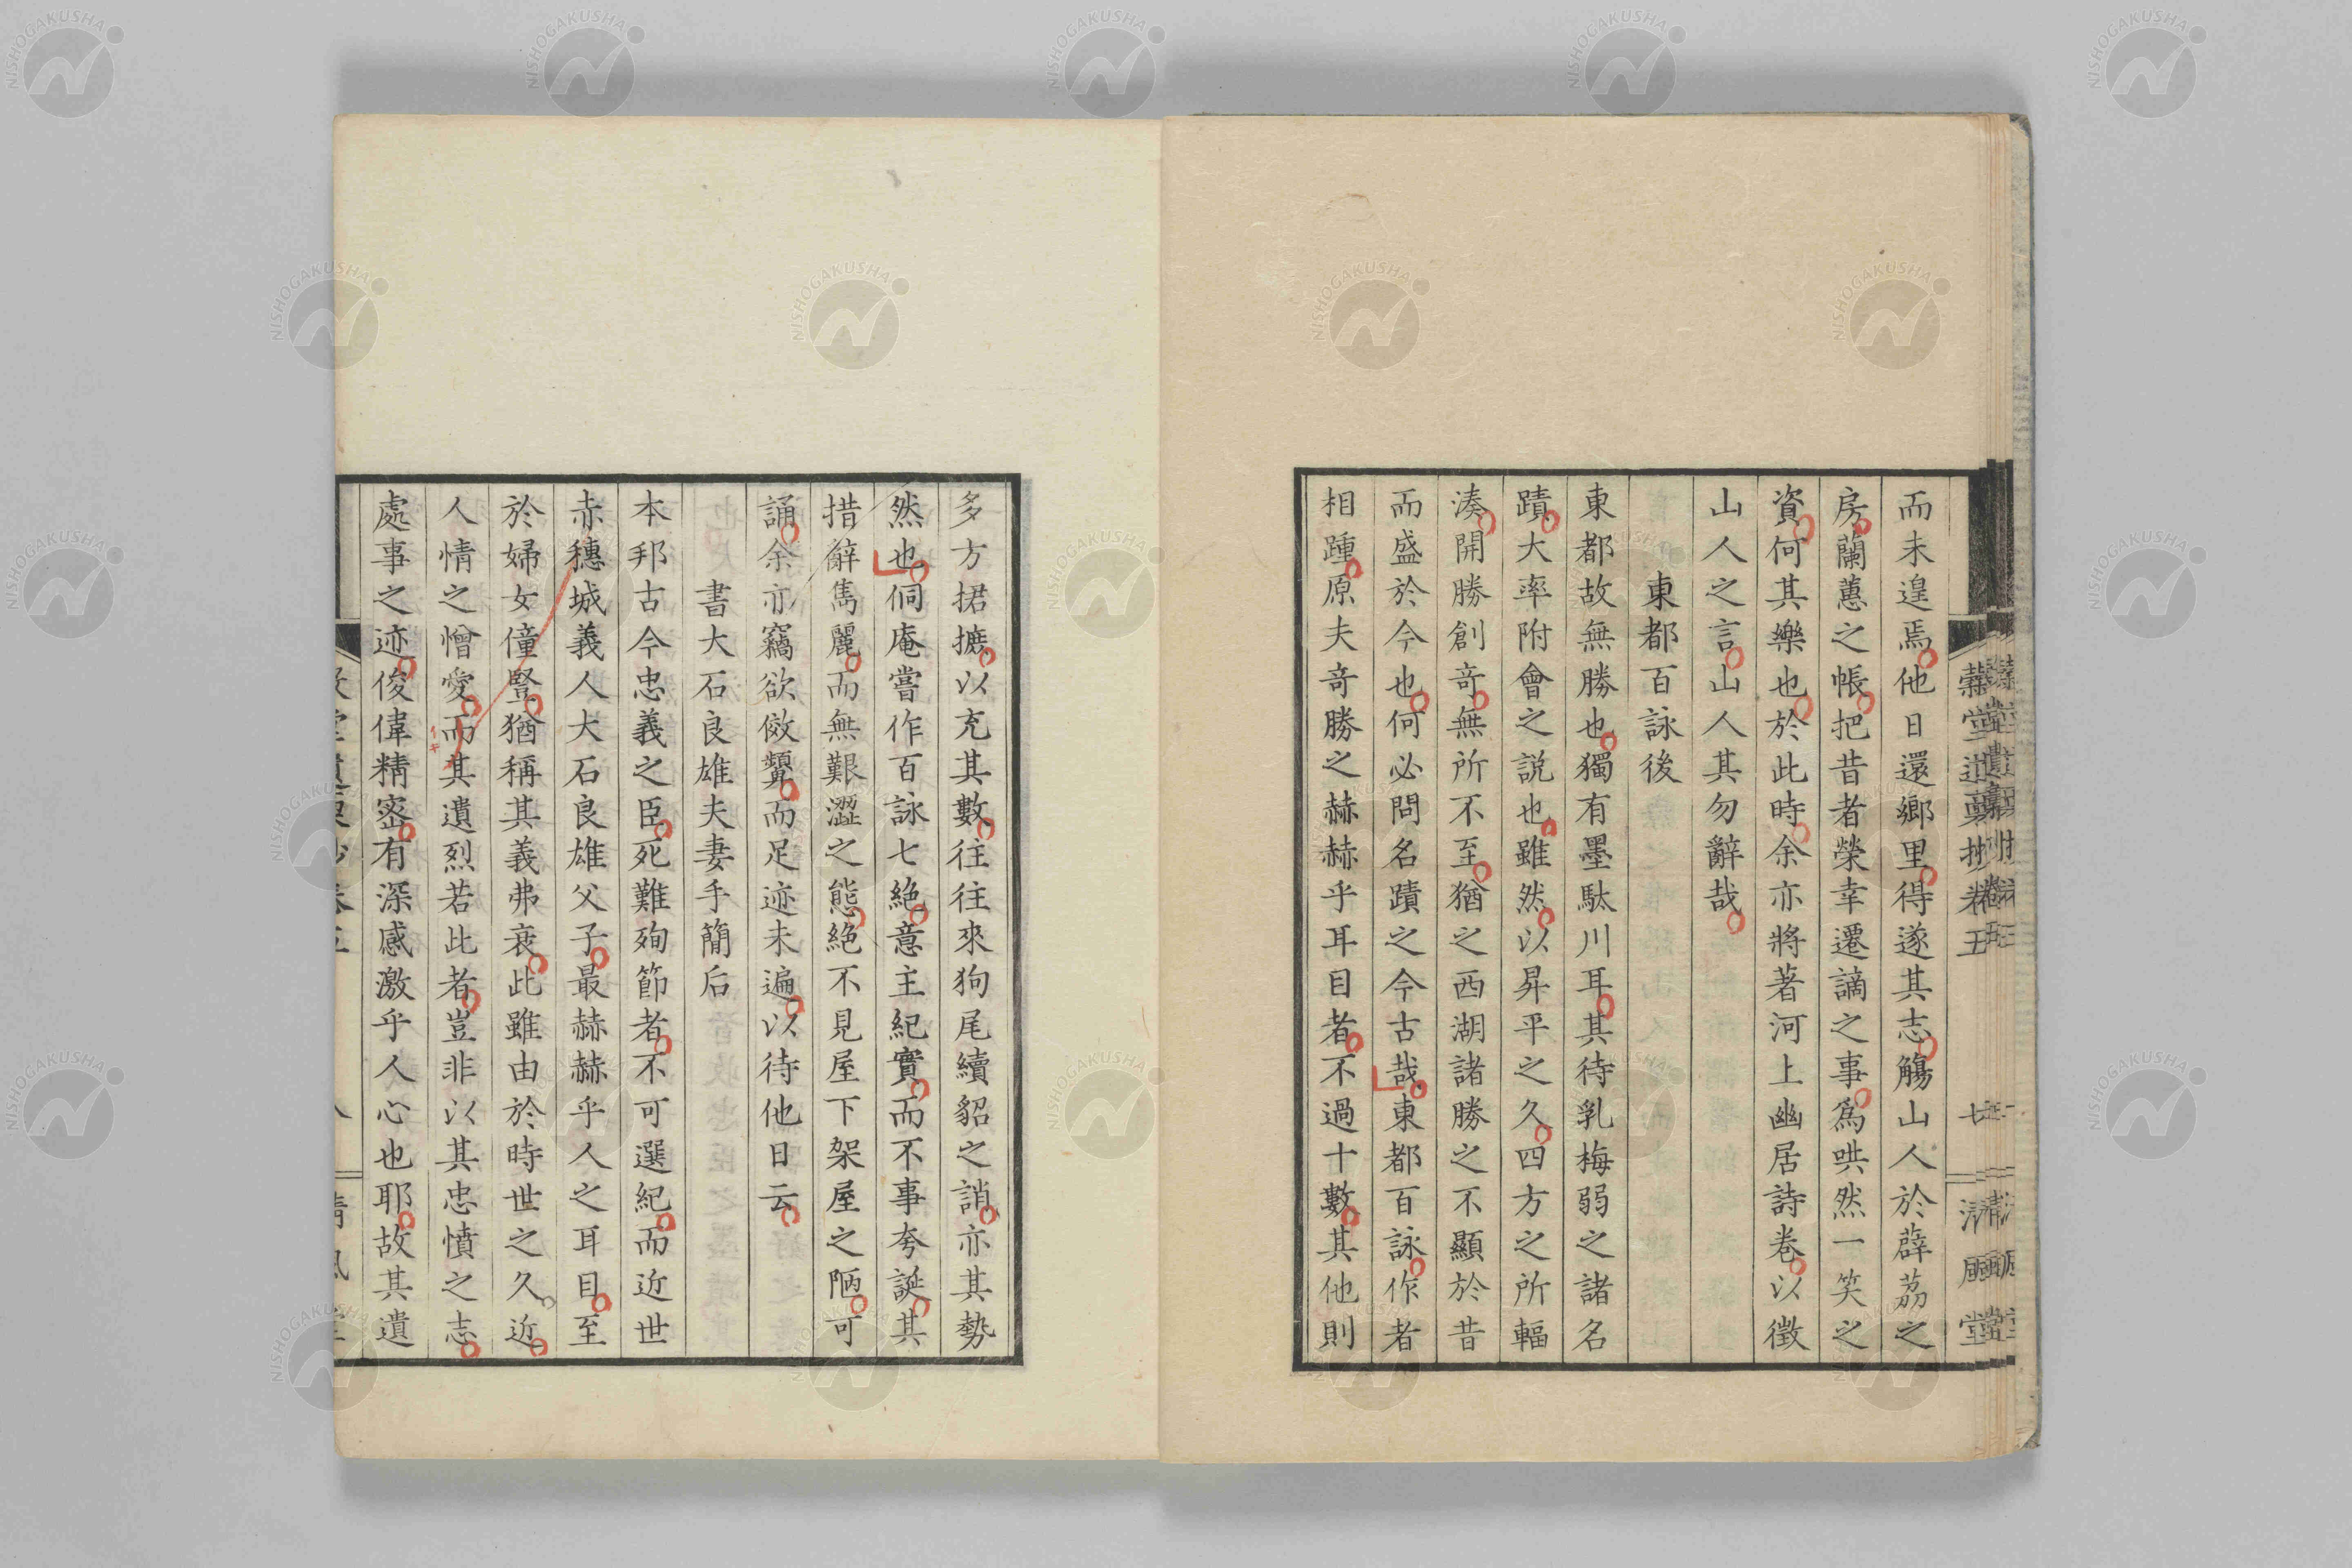 而未遑焉他日還鄉里得遂其志觴山人於薜茘之
房蘭蕙之帳把昔者榮幸遷謫之事爲哄然一笑之
資何其樂也於此時余亦將著河上幽居詩卷以徵
山人之言山人其勿辭哉
東都百詠後
東都故無勝也獨有墨駄川耳其待乳梅弱之諸名
蹟大率附會之説也雖然以昇平之久四方之所輻
湊開勝創奇無所不至猶之西湖諸勝之不顯於昔
而盛於今也何必問名蹟之今古哉東都百詠作者
相踵原夫奇勝之赫赫乎耳目者不過十數其他則
多方捃摭以充其數往往來狗尾續貂之誚亦其勢
然也侗庵嘗作百詠七絶意主紀實而不事夸誕其
措辭雋麗而無艱澀之態絶不見屋下架屋之陋可
誦余亦竊欲傚顰而足迹未遍以待他日云
書大石良雄夫妻手簡后
本邦古今忠義之臣死難殉節者不可選紀而近世
赤穗城義人大石良雄父子最赫赫乎人之耳目至
於婦女僮豎猶稱其義弗衰此雖由於時世之久近
人情之憎愛而其遺烈若此者豈非以其忠憤之志
處事之迹俊偉精密有深感激乎人心也耶故其遺
NISHOGAKUSHA